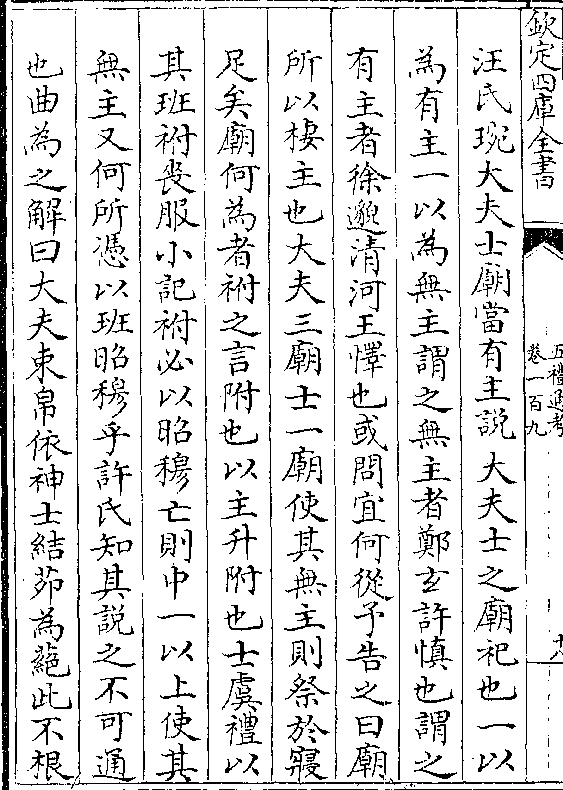 欽定四庫全書
五禮通考
卷一百九
十八
汪氏琬大夫士廟當有主說 大夫士之廟祀也一以
為有主一以為無主謂之無主者鄭玄許慎也謂之
有主者徐邈清河王懌也或問宜何從予告之曰廟
所以棲主也大夫三廟士一廟使其無主則祭於寢
足矣廟何為者祔之言附也以主升附也士虞禮以
其班祔喪服小記祔必以昭穆亡則中一以上使其
無主又何所憑以班昭穆乎許氏知其說之不可通
也曲為之解曰大夫束帛依神士結茆為蕝此不根